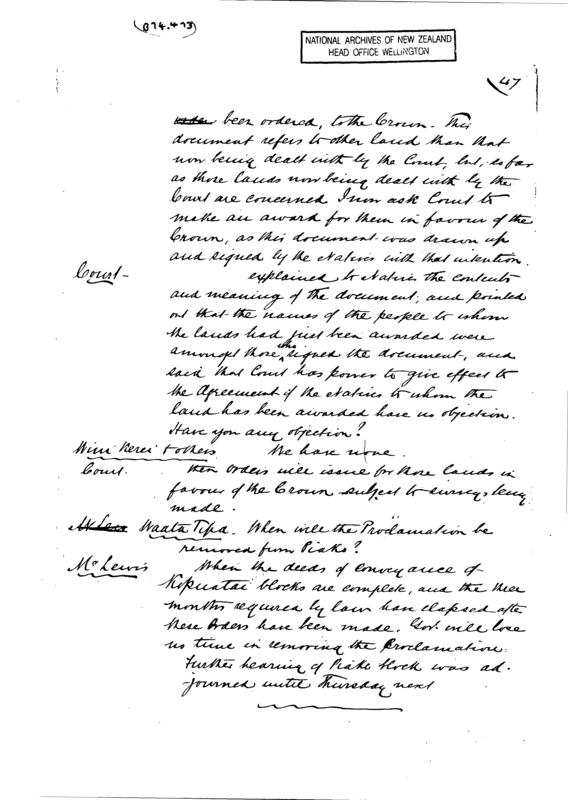 (874.473)
NATIONAL ARCHIVES OF NEW ZEALAND
HEAD OFFICE WELLINGTON
47
been ordered, to the Crown - This
document refers to other land than that
now being dealt with by the Court, but, so far
as those lands now being dealt with by the
Court are concerned I now ask Court to
make an award for them in favour of the
Crown, as this document was drawn up
and signed by the Natives with that intention.
Court - explained to Natives the contents
and meaning of the document, and pointed
out that the names of the people to whom
the lands had just been awarded were
amongst those who signed the document, and
said that Court has power to give effect to
the Agreement if the Natives to whom the
land has been awarded have no objection.
Have you any objection?
Wini Kerei & others We have none.
Court. Orders will issue for those lands in
favour of the Crown subject to surveys being
made.
Waata Tipa. When will the Proclamation be
removed from Piako?
Mr Lewis When the deeds of conveyance of
Kopuatai blocks are complete, and the three
months required by law have elapsed after
these Orders have been made, Govt. will lose
no time in removing the Proclamation.
Further hearing of Piako block was ad-
journed until Thursday next